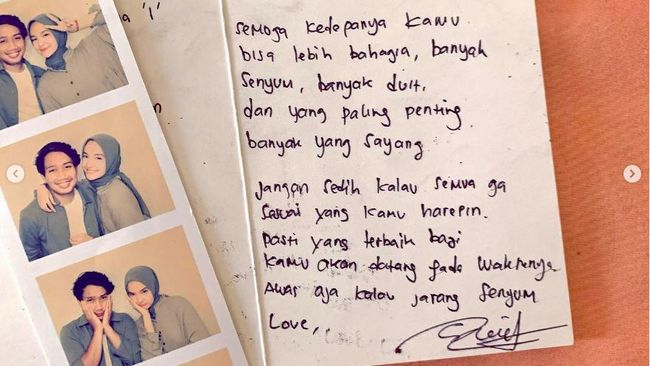 '1'
semoga kedepanya kamu
bisa lebih bahagia, banyak
senyum, banyak duit,
dan yang paling penting
banyak yang sayang
jangan sedih kalau semua ga
sesuai yang kamu harepin.
pasti yang terbaik bagi
kamu akan datang pada waktunya
Awas aja kalau jarang senyum
Love,